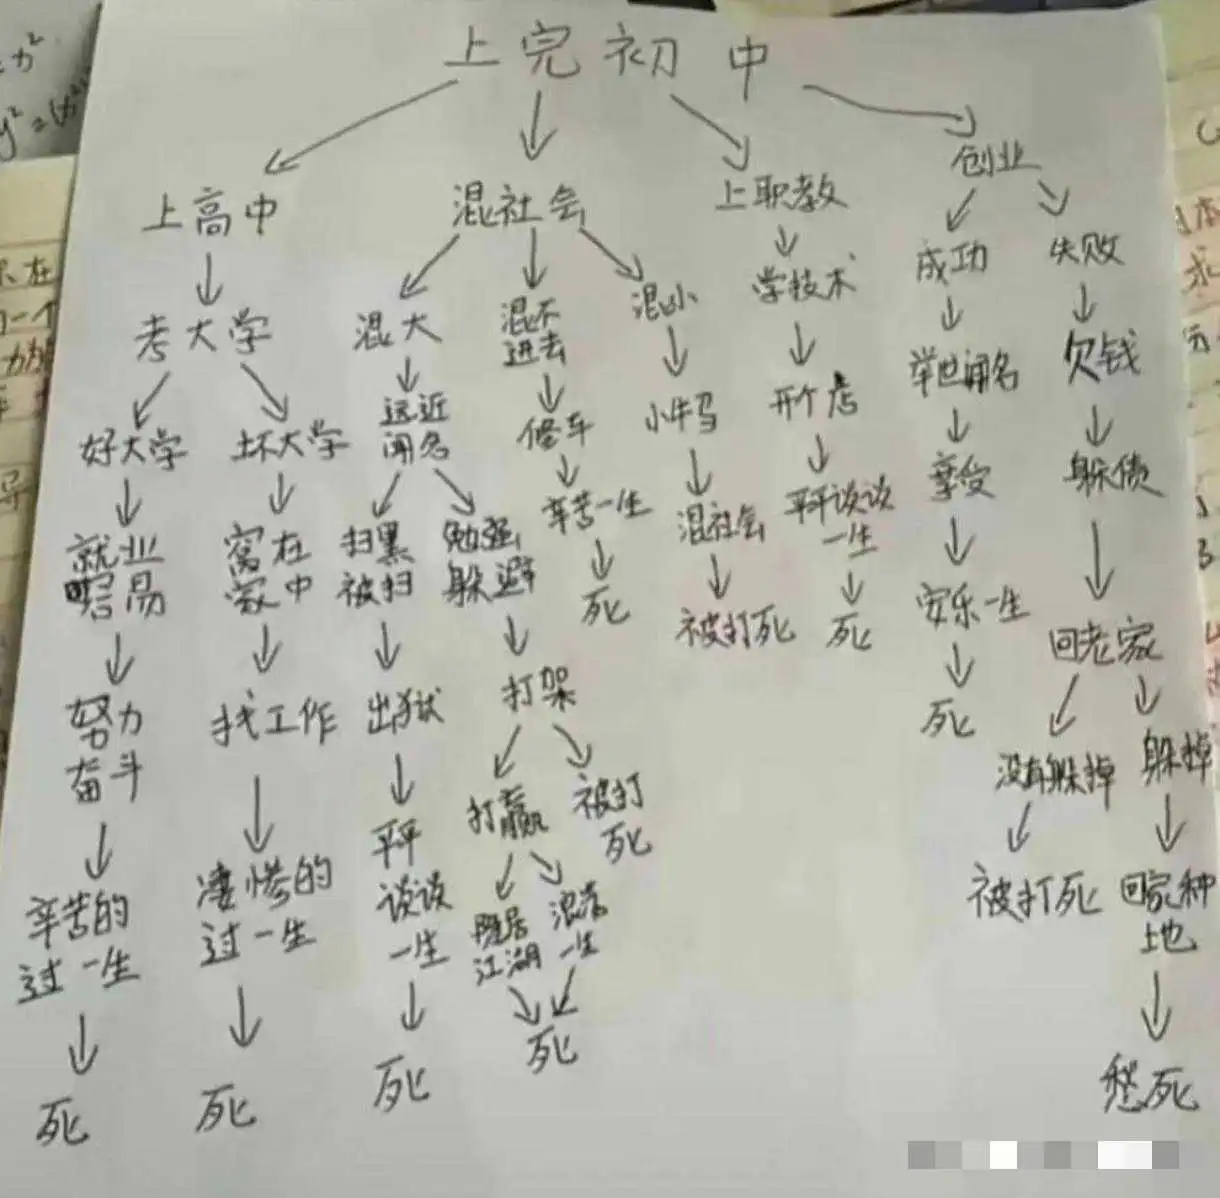 上完初中
上高中
考大学
好大学
就业
容易
努力
奋斗
辛苦的
过一生
死
坏大学
窝在
家中
找工作
凄惨的
过一生
死
混社会
混大
远近
闻名
扫黑
被扫
出狱
平平
谈谈
一生
死
勉强
躲避
打架
打赢
隐居
江湖
浪荡
一生
死
被打
死
混不
进去
修车
辛苦一生
死
混小
小牛马
混社会
被打死
上职教
学技术
开个店
平平谈谈
一生
死
创业
成功
举世闻名
享受
安乐一生
死
失败
欠钱
躲债
回老家
没有躲掉
被打死
躲掉
回家种
地
愁死